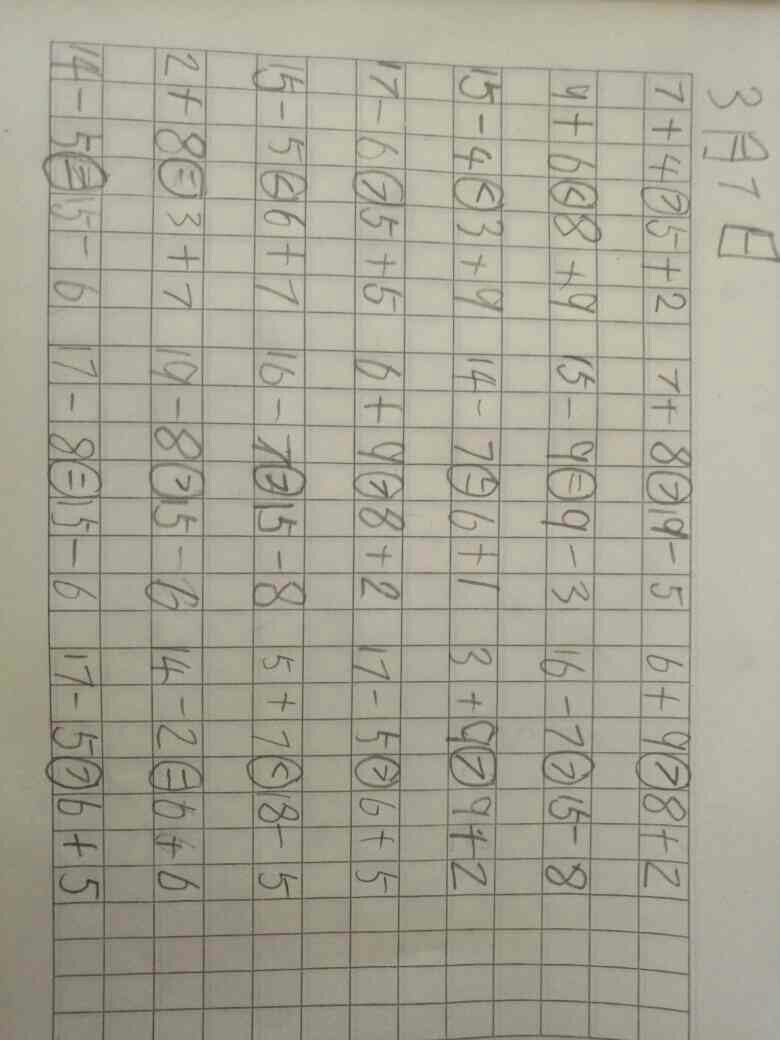 3月7日
7+4>5+2 7+8>19-5 6+9>8+2
9+6<8+9 15-9=9-3 16-7>15-8
15-4<3+9 14-7=6+1 3+9>9+2
17-6>5+5 6+9>8+2 17-5>6+5
15-5<6+7 16-7>15-8 5+7<18-5
2+8=3+7 19-8>15-6 14-2=6+6
14-5=15-6 17-8=15-6 17-5>6+5